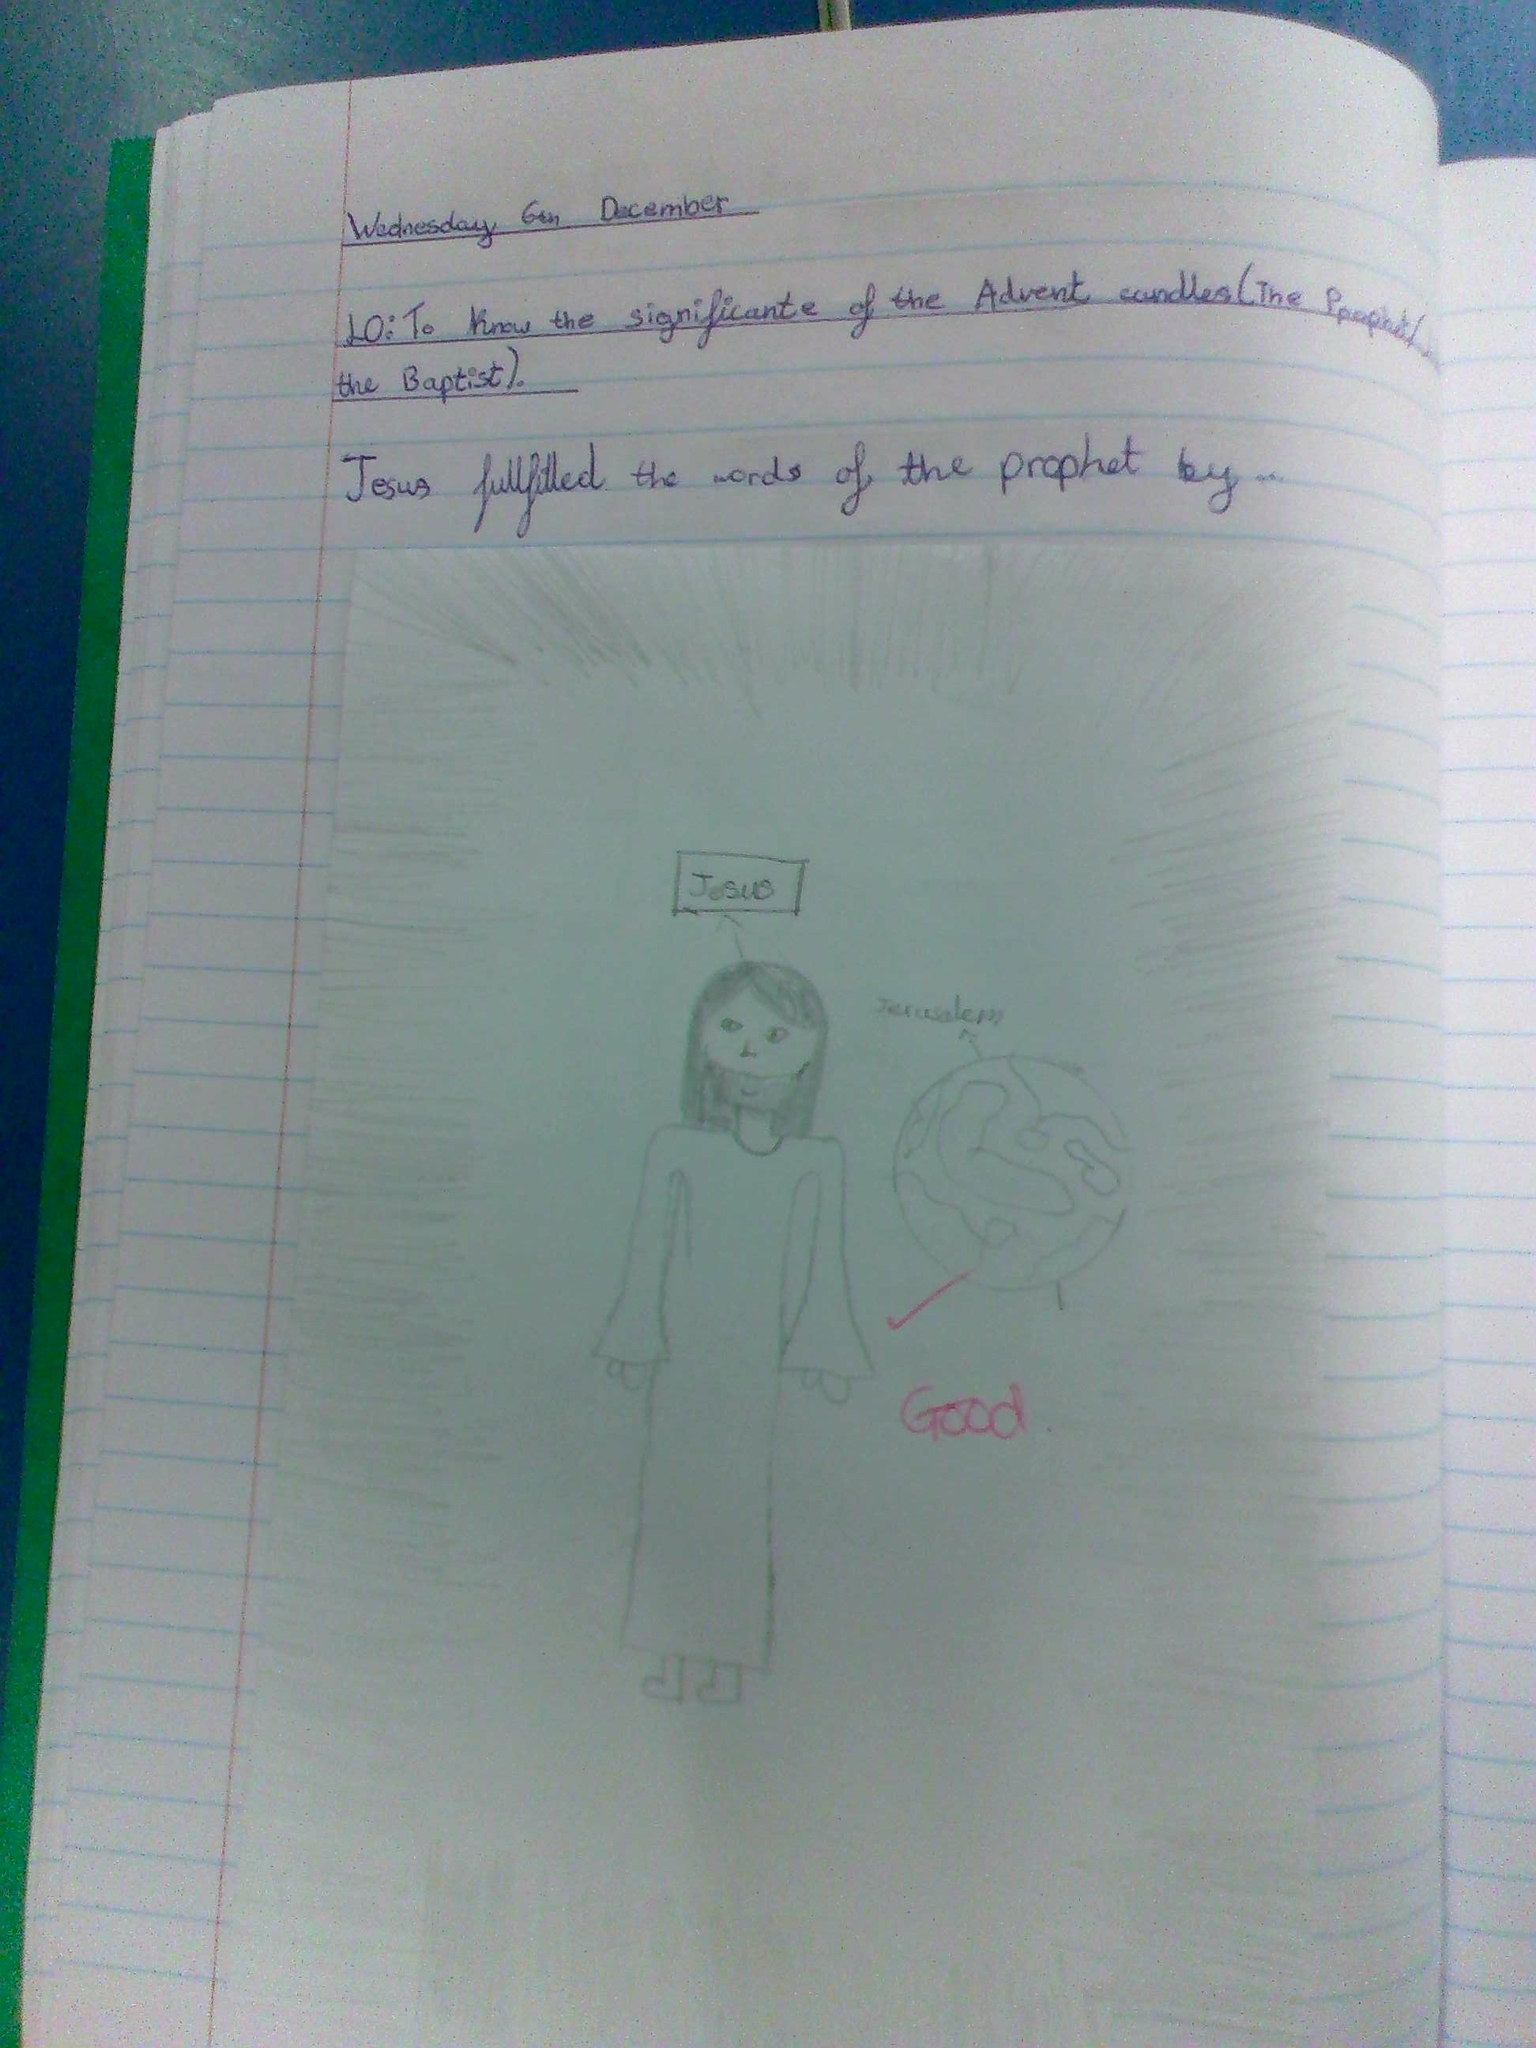 Wednesday 6th December
LO: To know the significante of the Advent candles (The Pprophet/
the Baptist).
Jesus fullfilled the words of the prophet by...
Jesus
Jerusalem
Good.